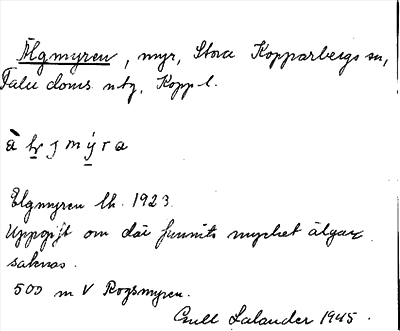 Älgmyren, myr, Stora Kopparbergs sn,
Falu doms. ntg, Kopp. l.
Elgmyren lk. 1923.
Uppgift om där funnits mycket älgar
saknas.
500 m V Rogsmyren.
Lalander 1945.